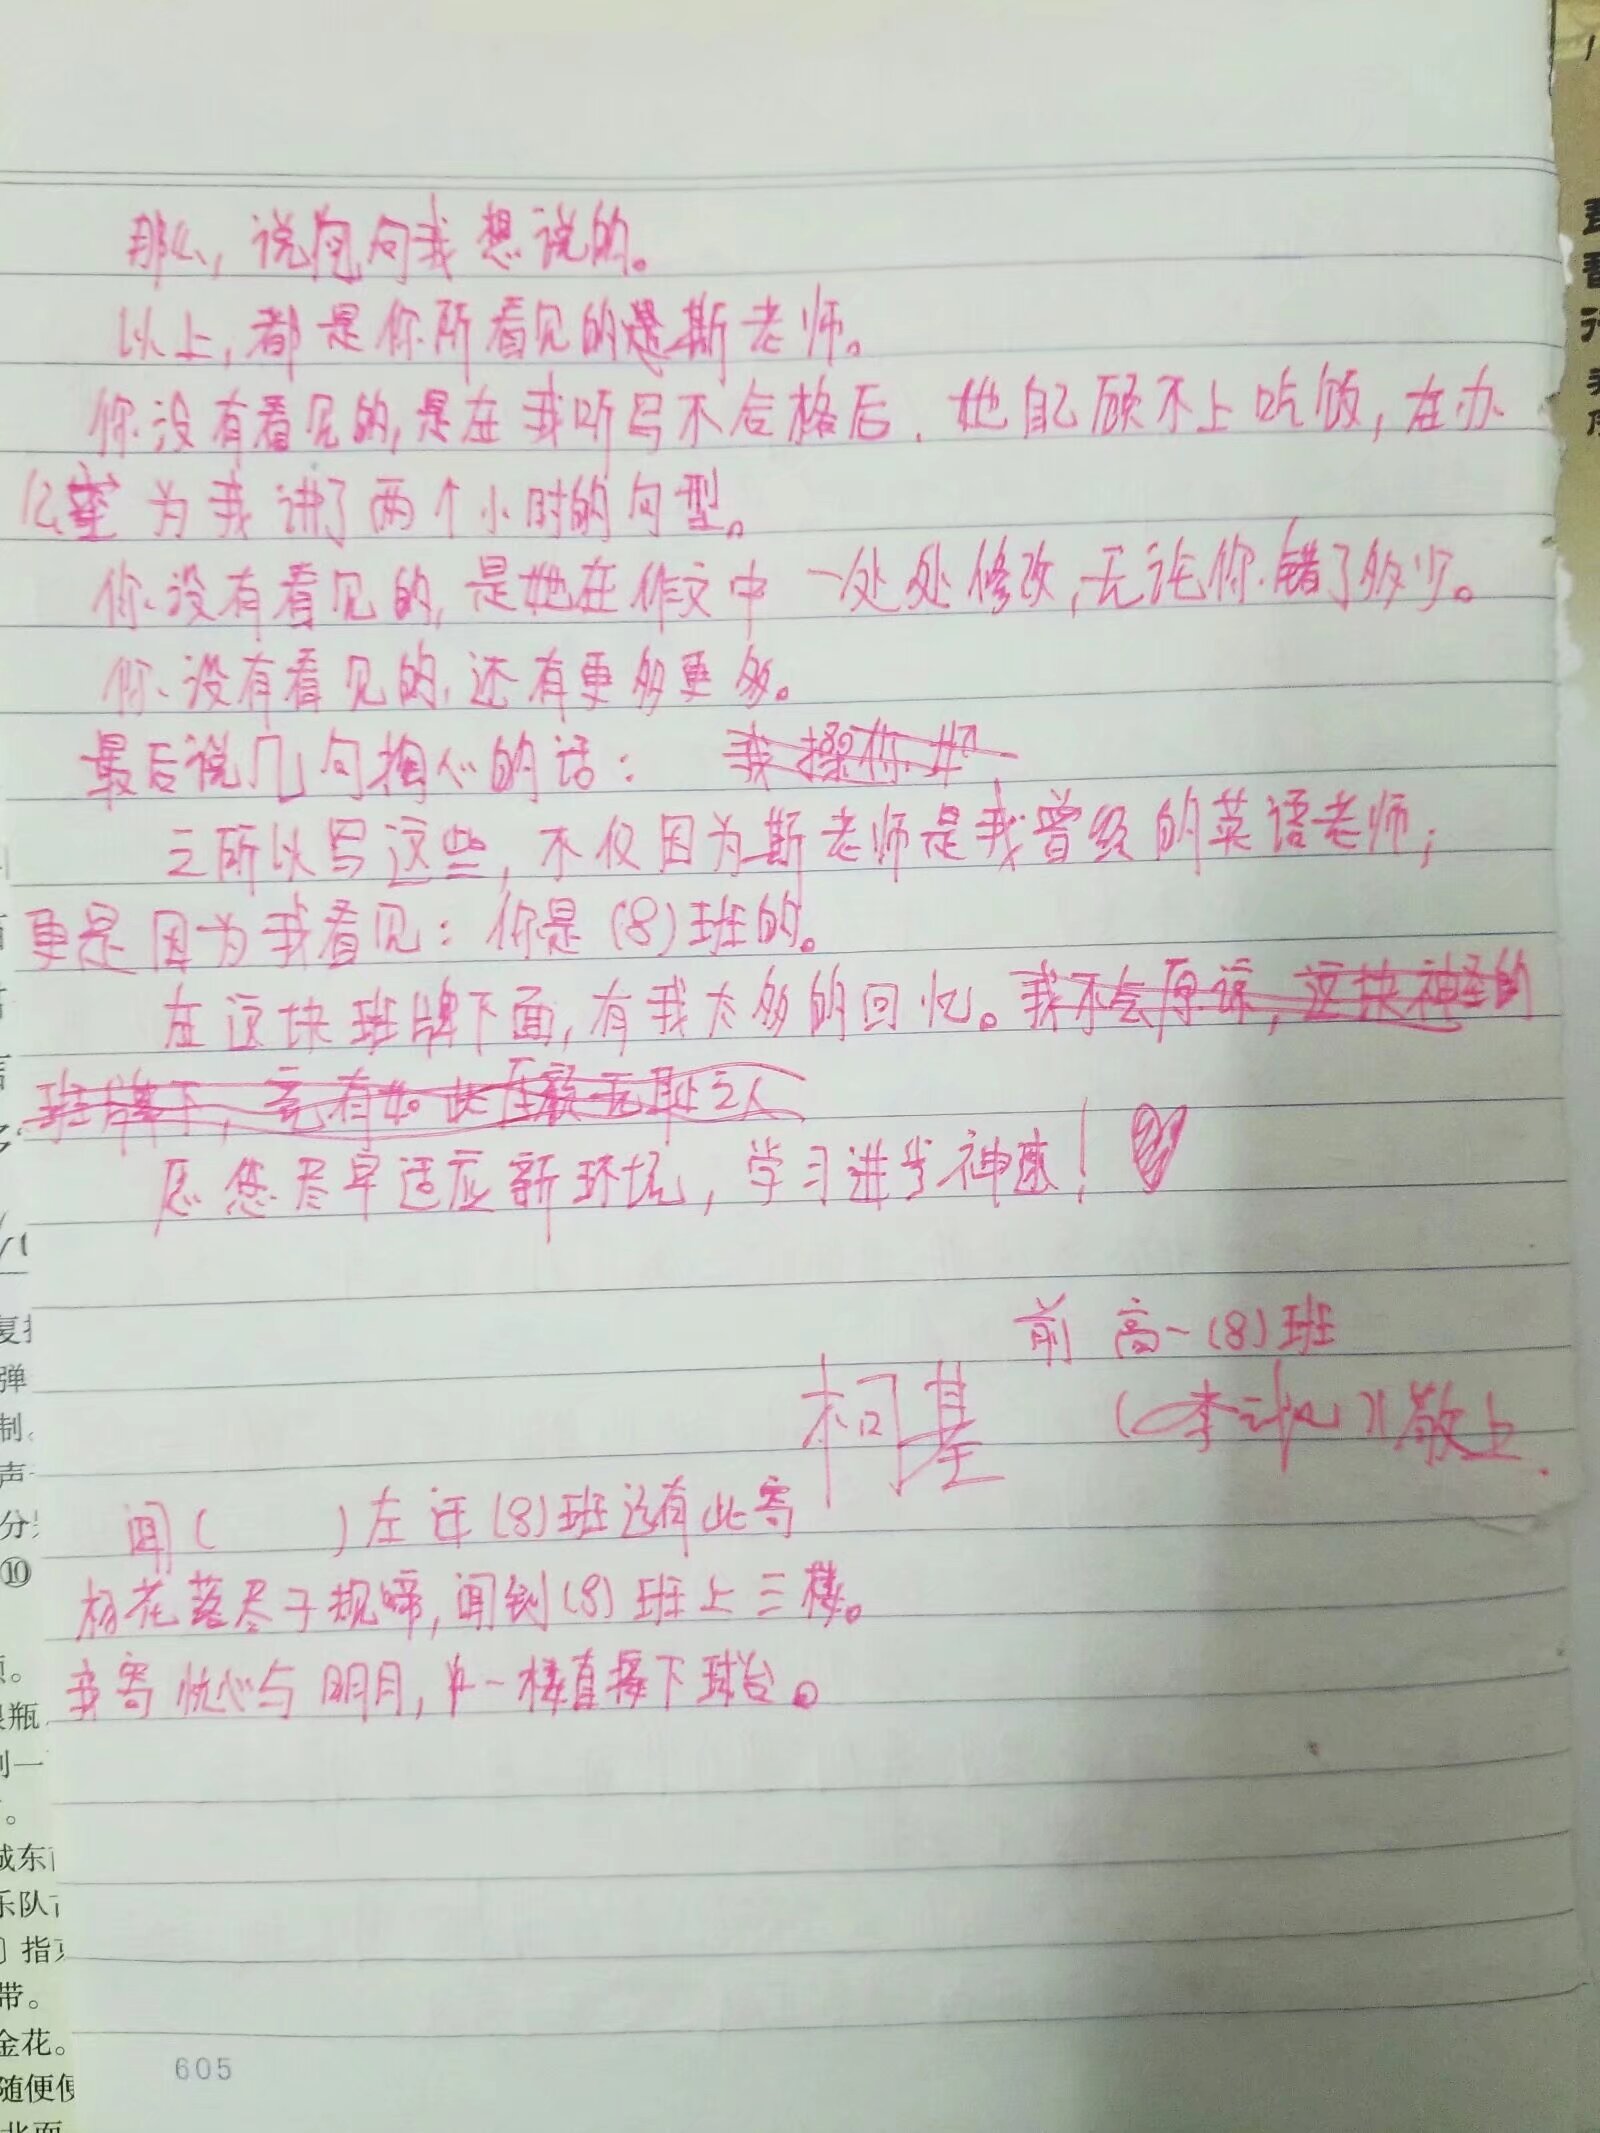 那么,说句向我想说的。
以上,都是你所看见的斯老师。
你没有看见的,是在我听写不合格后,她自己顾不上吃饭,在办
公室为我讲了两个小时的句型。
你没有看见的,是她在作文中一处处修改,无论你错了多少。
你没有看见的,还有更多更多。
最后说几句掏心的话: 我操你妈
之所以写这些,不仅因为斯老师是我曾经的英语老师;
更是因为我看见:你是(8)班的。
在这块班牌下面,有我太多的回忆。我不会原谅,这块神圣的
班牌下,竟有如此厚颜无耻之人
愿您尽早适应新环境,学习进步神速!
前 高一(8)班
柯基
敬上.
闻( )左迁(8)班遥有此寄
杨花落尽子规啼,闻到(8)班上三楼。
我寄忧心与明月,一棒直接下球台。
605
复
弹
制
声
分
⑩
瓶
城东
乐队
指
带。
金花。
随便